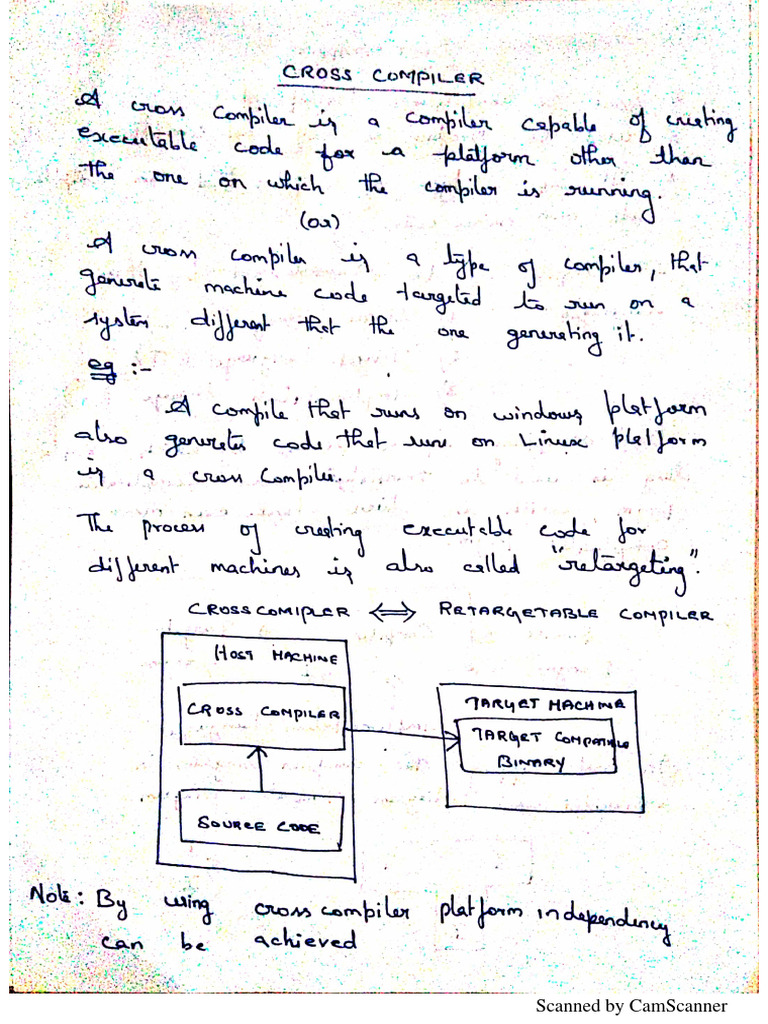 CROSS COMPILER
A cross compiler is a compiler capable of creating
executable code for a platform other than
the one on which the compiler is running.
(or)
A cross compiler is a type of compiler, that
generate machine code targeted to run on a
system different that the one generating it.
eg :-
A compile that runs on windows platform
also generates code that runs on Linux platform
is a cross compiler.
The process of creating executable code for
different machines is also called "retargeting".
CROSSCOMIPLER ⟺ RETARGETABLE COMPILER
HOST MACHINE
CROSS COMPILER
SOURCE CODE
TARGET MACHINE
TARGET COMPATIBLE
BINARY
Note: By using cross compiler platform independency
can be achieved
Scanned by CamScanner